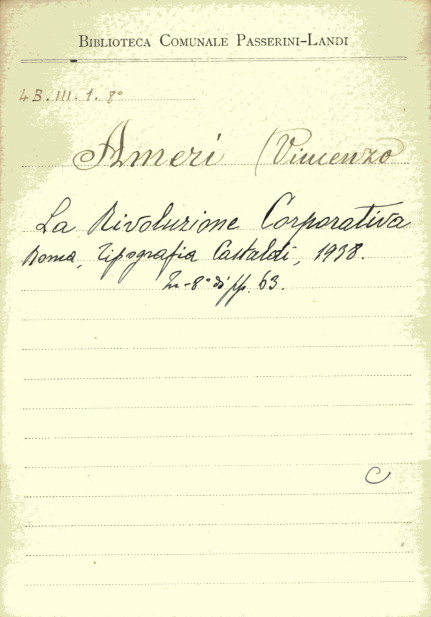 BIBLIOTECA COMUNALE PASSERINI-LANDI
4 B. III. 1. 8°
Ameri (Vincenzo
La Rivoluzione Corporativa
Roma, Tipografia Castaldi, 1938.
In-8° di pp. 63.
C